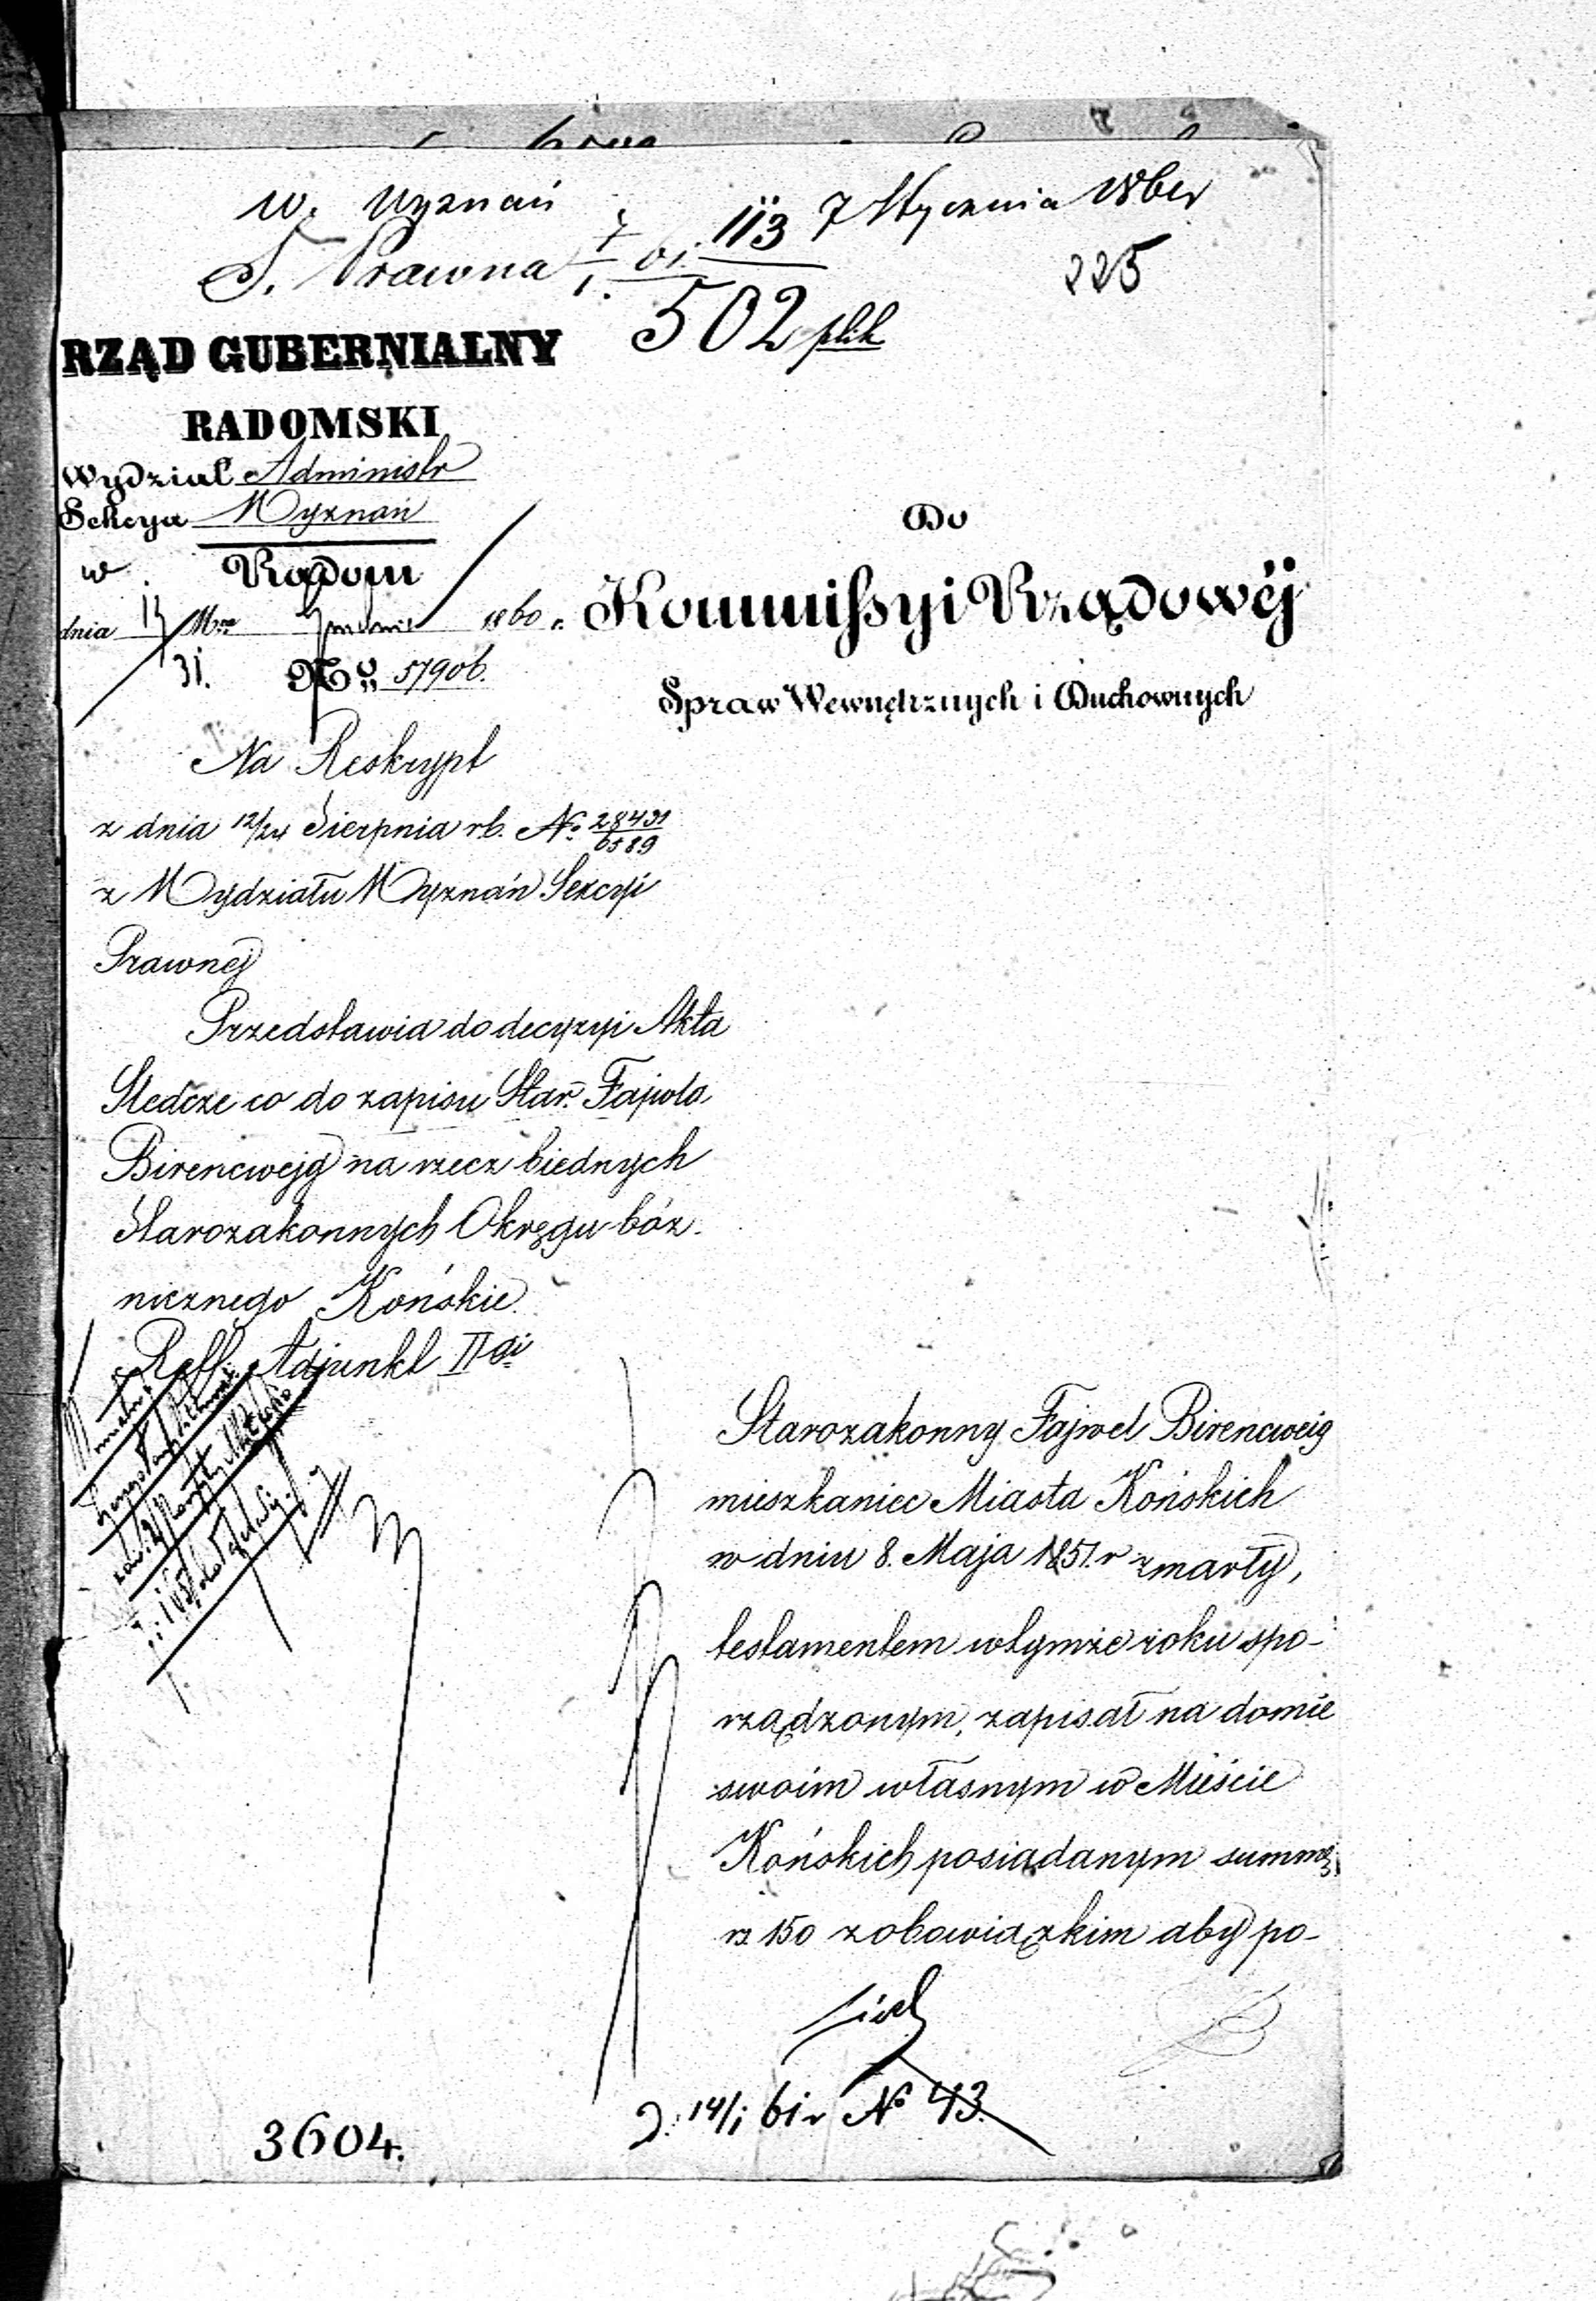 W. Wyznań
S. Prawna 7/1. 61. 113 7 Stycznia
225
502 plik
RZĄD GUBERNIALNY
RADOMSKI
Wydział Administr
Sekcya Wyznań
w Radom
dnia 19/31. Mca Grudnia 1860 r.
No 57906.
Do
Kommissyi Rządowéj
Spraw Wewnętrznych i Duchownych
Na Reskrypt
z dnia 12/24 Sierpnia rb. No 28431/6589
z Wydziału Wyznań Sekcyi
Prawnej
Przedstawia do decyzyi Akta
Śledcze co do zapisu Star. Fajwla
Birencwejg na rzecz biednych
Starozakonnych Okręgu bóż-
nicznego Końskie.
Reff. Adjunkt II gi
Starozakonny Fajwel Birencweig
mieszkaniec Miasta Końskich
w dniu 8. Maja 1851. r zmarły,
testamentem w tymże roku spo-
rządzonym, zapisał na domie
swoim własnym w Mieście
Końskich posiadanym summę
rs 150 z obowiązkim aby po-
14/1 61 r No 43.
3604.